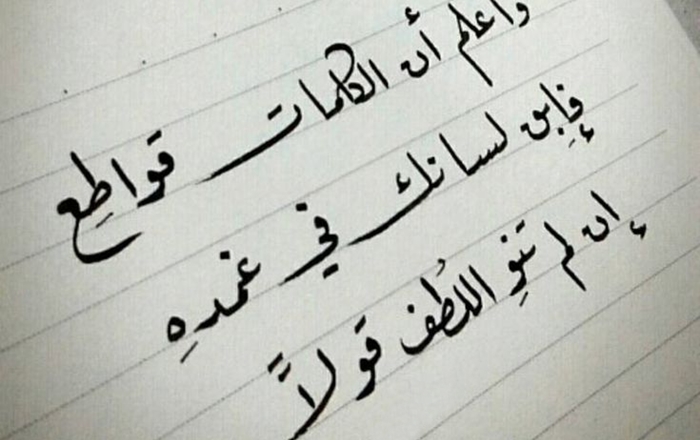 وأعلم أن الكلمات قواطع
فإبق لسانك في غمدهِ
إن لم تنوِ اللُطف قولاً